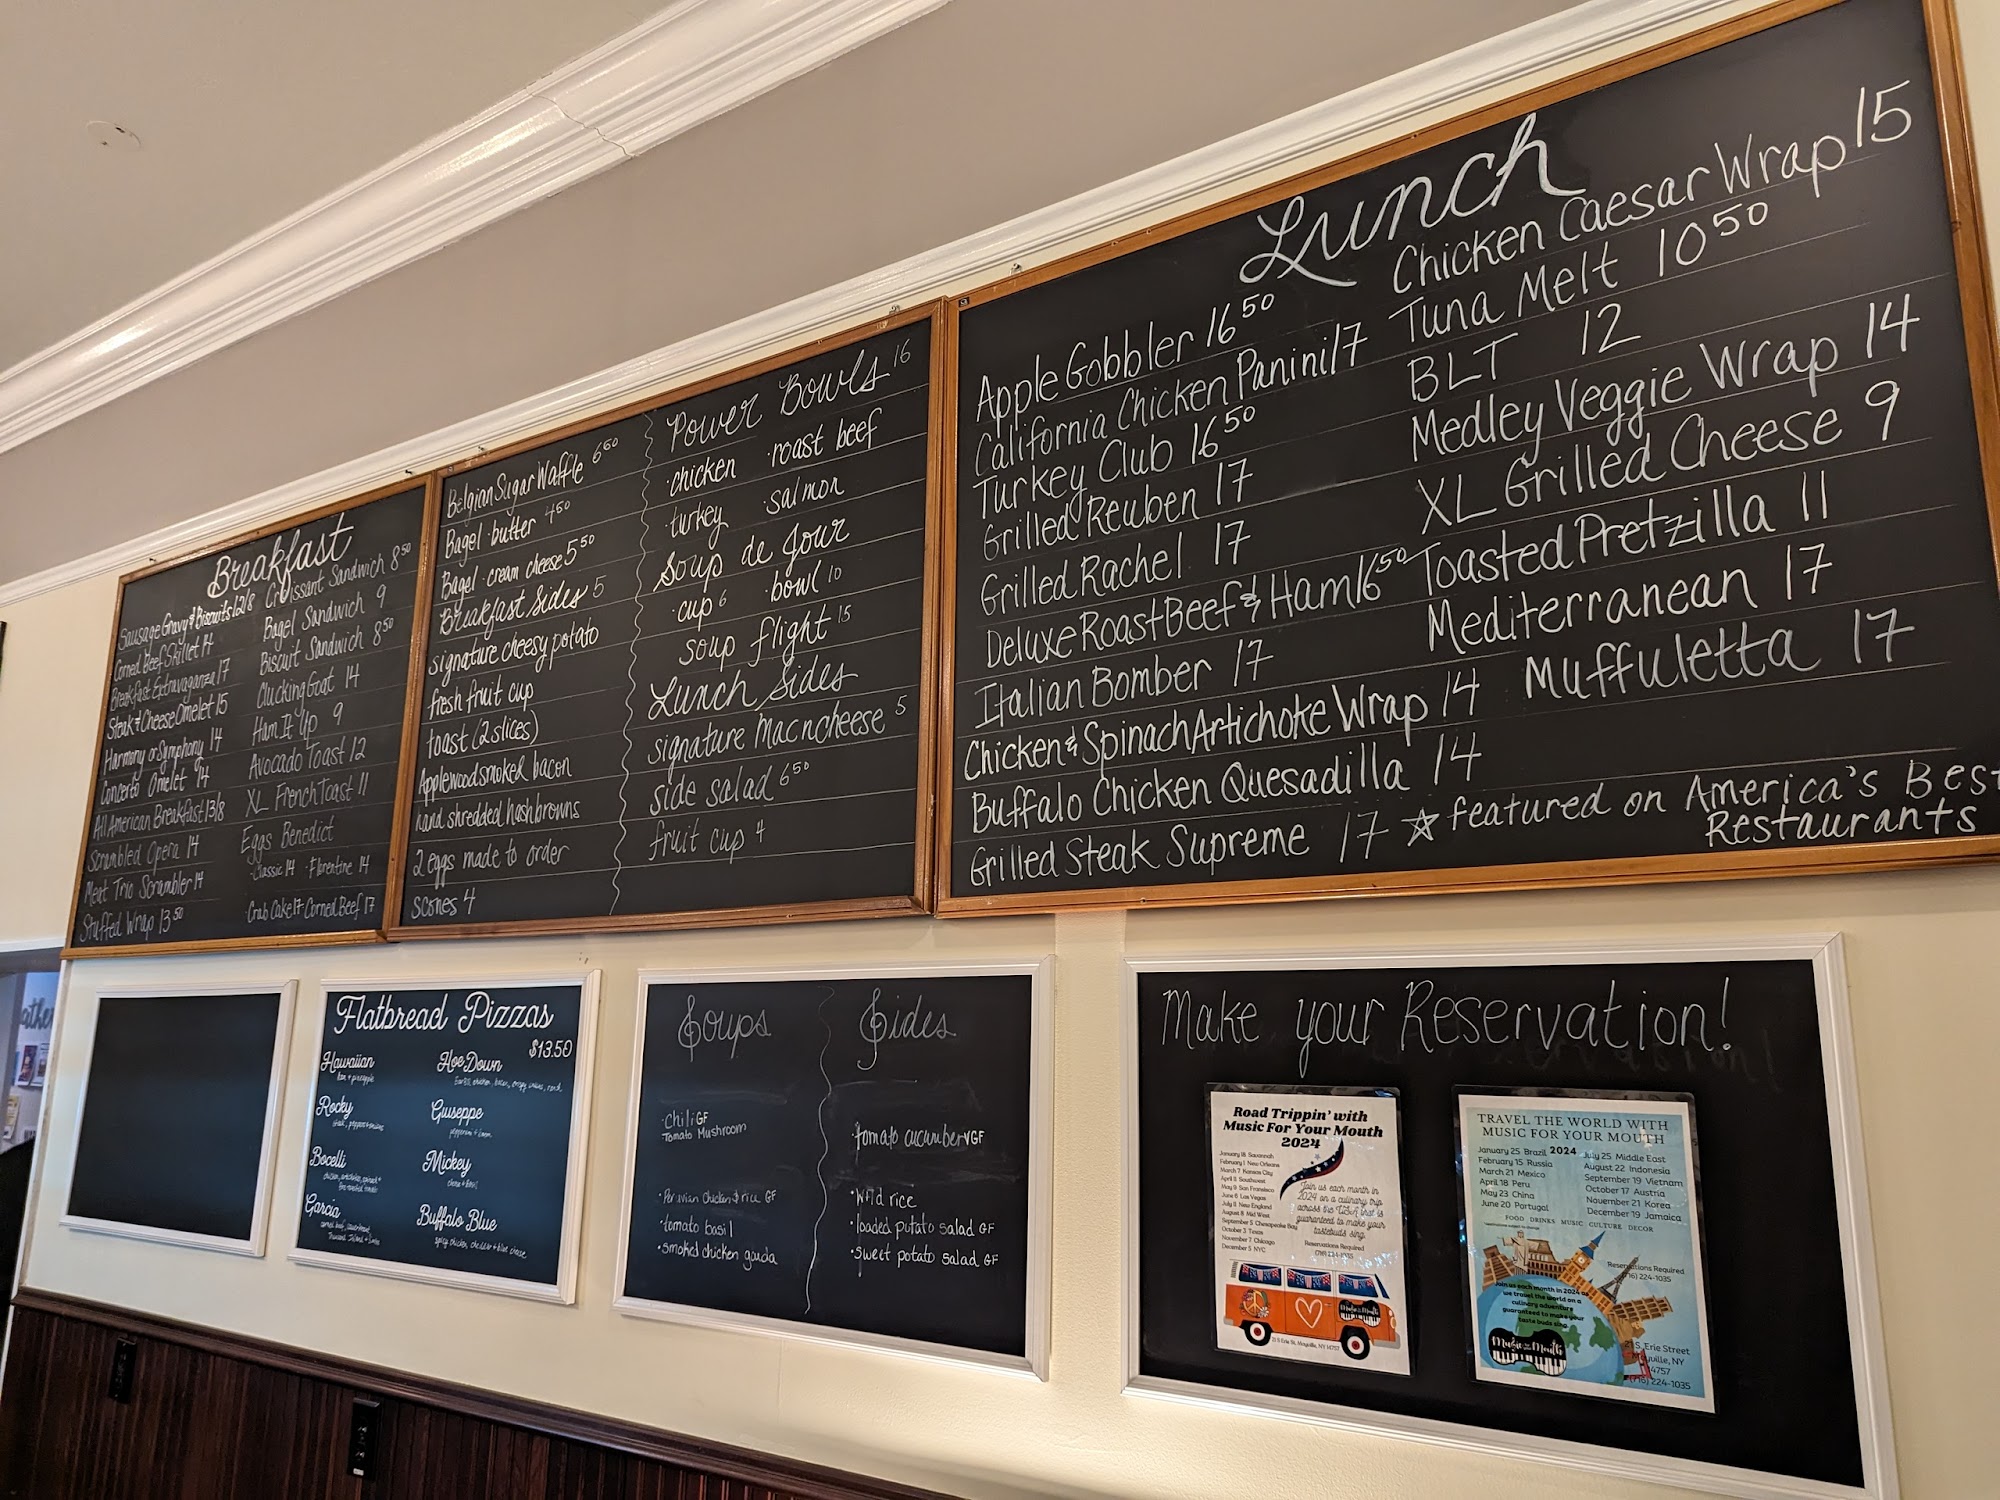 Breakfast
Sausage Gravy & Biscuits 12/8
Corned Beef Skillet 14
Breakfast Extravaganza 17
Steak & Cheese Omelet 15
Harmony or Symphony 14
Concerto Omelet 14
All American Breakfast 13/8
Scrambled Opera 14
Meat Trio Scrambler 14
Stuffed Wrap 13 50
Croissant Sandwich 8 50
Bagel Sandwich 9
Biscuit Sandwich 8 50
Clucking Goat 14
Ham It Up 9
Avocado Toast 12
XL French Toast 11
Eggs Benedict
·Classic 14 ·Florentine 14
·Crab Cake 17 Corned Beef 17
Belgian Sugar Waffle 6 50
Bagel · butter 4 50
Bagel · cream cheese 5 50
Breakfast Sides 5
signature cheesy potato
fresh fruit cup
toast (2 slices)
Applewood smoked bacon
hand shredded hashbrowns
2 eggs made to order
scones 4
Power Bowls 16
·chicken ·roast beef
·turkey ·salmon
Soup de Jour
·cup 6 ·bowl 10
soup flight 15
Lunch Sides
signature Mac n cheese 5
side salad 6 50
fruit cup 4
Lunch
Apple Gobbler 16 50
California Chicken Panini 17
Turkey Club 16 50
Grilled Reuben 17
Grilled Rachel 17
Deluxe Roast Beef & Ham 16 50
Italian Bomber 17
Chicken & Spinach Artichoke Wrap 14
Buffalo Chicken Quesadilla 14
Grilled Steak Supreme 17
Chicken Caesar Wrap 15
Tuna Melt 10 50
BLT 12
Medley Veggie Wrap 14
XL Grilled Cheese 9
Toasted Pretzilla 11
Mediterranean 17
Muffuletta 17
☆ featured on America's Best
Restaurants
Flatbread Pizzas
$13.50
Hawaiian
ham & pineapple
Rocky
steak, peppers & onions
Bocelli
Garcia
Hoe Down
Giuseppe
Mickey
Buffalo Blue
Soups
·Chili GF
Tomato Mushroom
·Peruvian Chicken & rice GF
·tomato basil
·smoked chicken gouda
Sides
·tomato cucumber VGF
·Wild rice
·loaded potato salad GF
·sweet potato salad GF
Make your Reservation!
Road Trippin' with
Music For Your Mouth
2024
January 18 Savannah
February 1 New Orleans
March 7 Kansas City
April 11 Southwest
May 9 San Francisco
June 6 Las Vegas
July 11 New England
August 8 Mid West
September 5 Chesapeake Bay
October 3 Texas
November 7 Chicago
December 5 NYC
Join us each month in
2024 on a culinary trip
across the USA that is
guaranteed to make your
tastebuds sing.
Reservations Required
(716) 224-1035
Music for your Mouth
21 S Erie St, Mayville, NY 14757
TRAVEL THE WORLD WITH
MUSIC FOR YOUR MOUTH
2024
January 25 Brazil
February 15 Russia
March 21 Mexico
April 18 Peru
May 23 China
June 20 Portugal
July 25 Middle East
August 22 Indonesia
September 19 Vietnam
October 17 Austria
November 21 Korea
December 19 Jamaica
FOOD DRINKS MUSIC CULTURE DECOR
Reservations Required
(716) 224-1035
Join us each month in 2024 as
we travel the world on a
culinary adventure
guaranteed to make your
taste buds sing.
Music for your Mouth
21 S. Erie Street
Mayville, NY
14757
(716) 224-1035